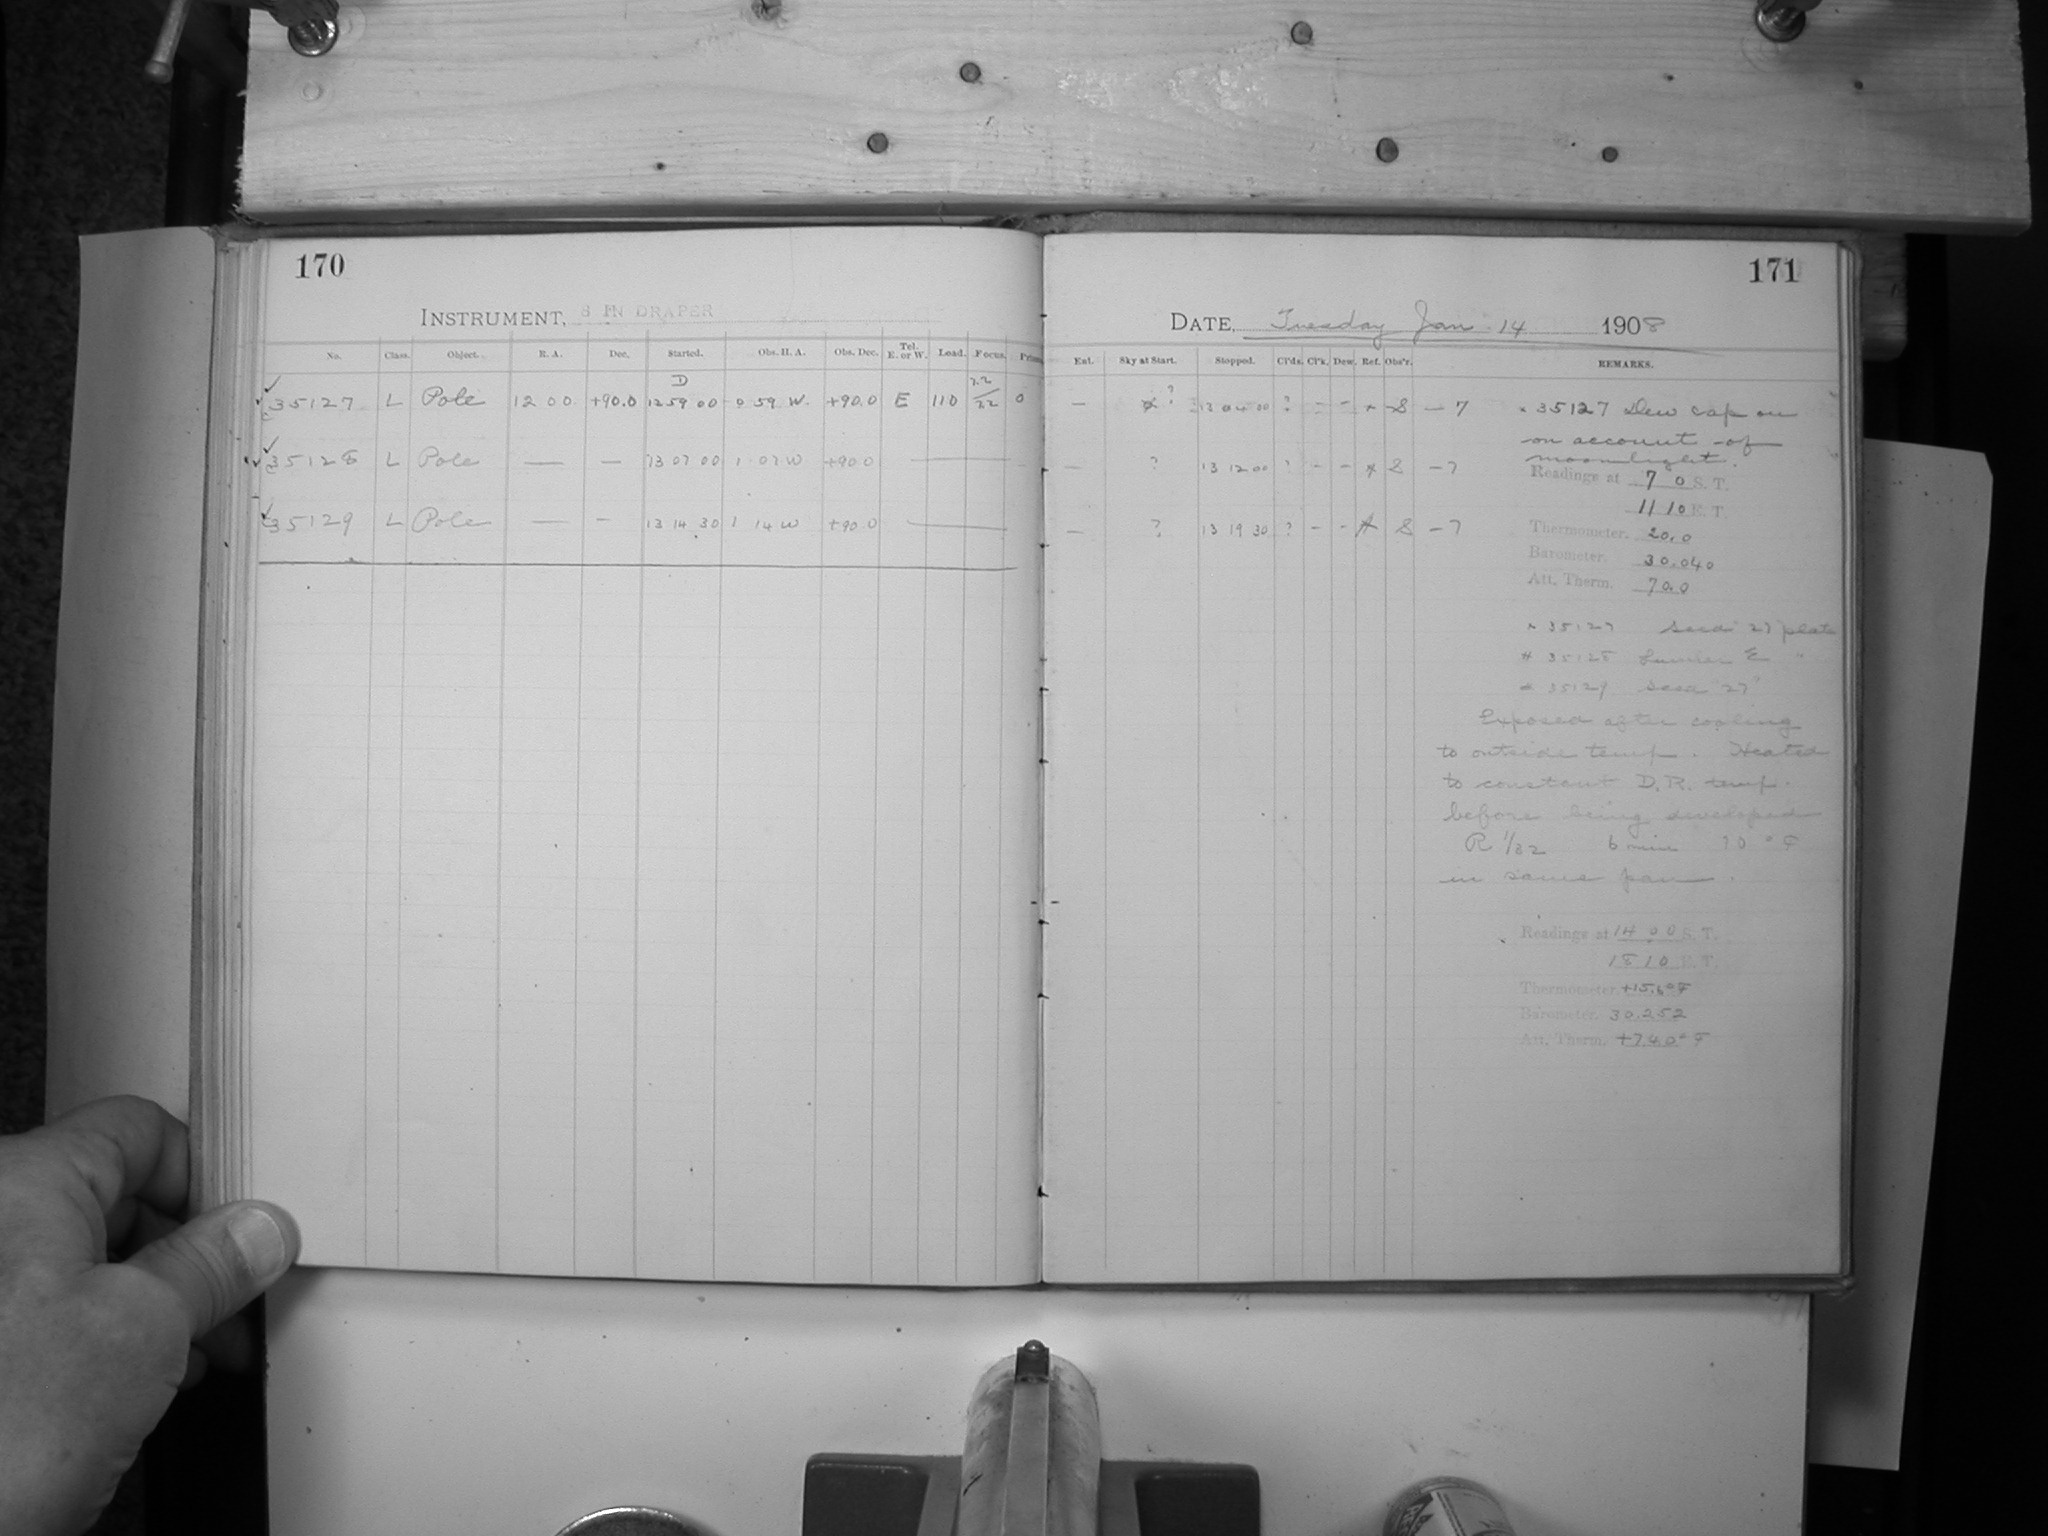 170
INSTRUMENT, 8 IN DRAPER
No. Class. Object. R. A. Dec. Started. Obs. H. A. Obs. Dec. Tel. E. or W. Load. Focus.
D
35127 L Pole 12 00 +90.0 12 59 00 0 59 W. +90.0 E 110 0
35128 L Pole — — 13 07 00 1 07 W +90.0 —
35129 L Pole — — 13 14 30 1 14 W +90.0 —
171
DATE, Tuesday Jan. 14 1908
Est. Sky at Start. Stopped. Cl'ds. Cl'k. Dew. Ref. Obs'r. REMARKS.
— ? 13 04 00 ? - - * S — 7
— ? 13 12 00 ? - - * S — 7
— ? 13 19 30 ? - - * S — 7
* 35127 Dew cap on
on account of
moonlight.
Readings at 7 0 S. T.
11 10 E. T.
Thermometer. 20.0
Barometer. 30.040
Att. Therm. 70.0
* 35127 seed 27 plate
* 35128 Lumier Σ "
* 35129 seed 27
Exposed after cooling
to outside temp. Heated
to constant D. R. temp.
before being developed
R 1/32 6 min 70 ° F
in same pan.
Readings at 14 00 S. T.
18 10 E. T.
Thermometer. +15.6° F
Barometer. 30.252
Att. Therm. +74.0° F